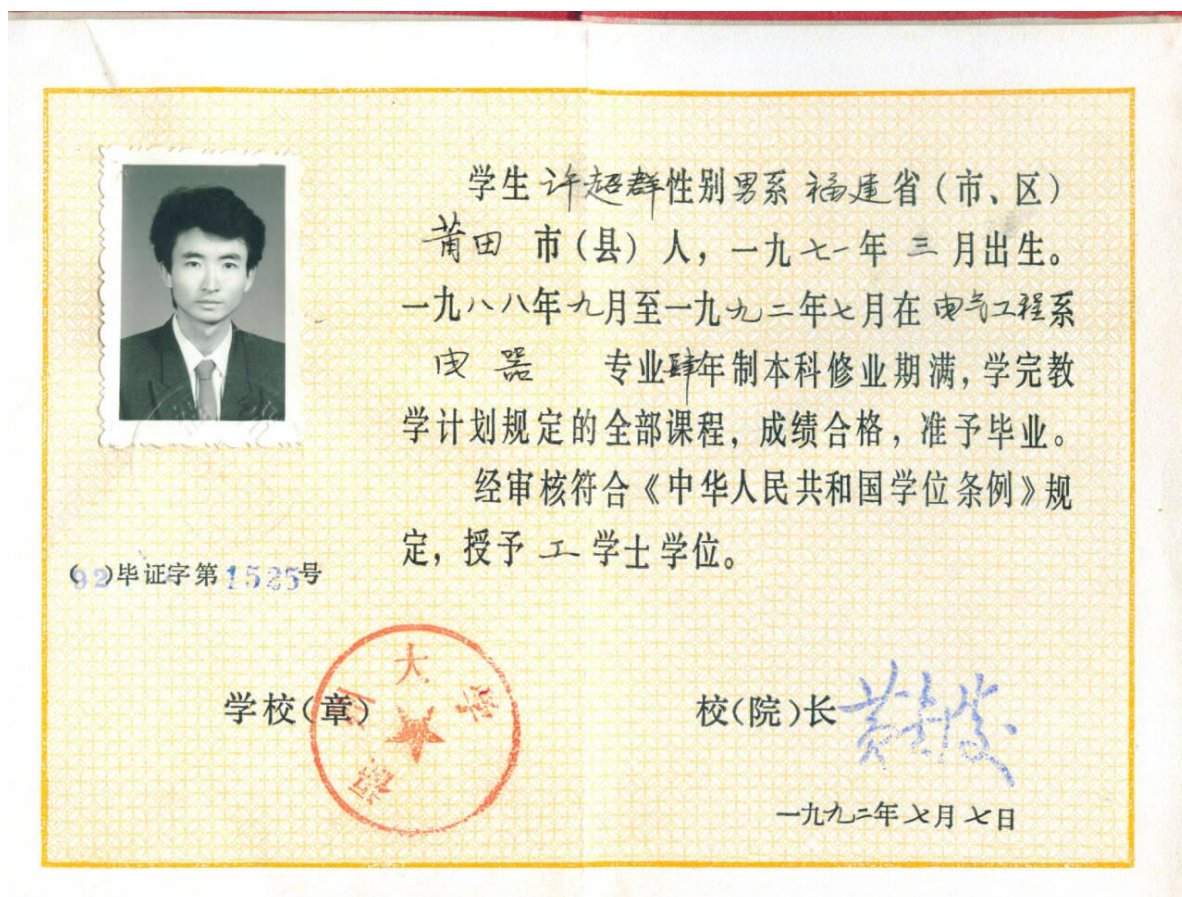 学生 许超群 性别 男 系 福建 省（市、区）
莆田 市（县）人，一九七一年 三 月出生。
一九八八年九月至一九九二年七月在 电气工程系
电器 专业肆年制本科修业期满，学完教
学计划规定的全部课程，成绩合格，准予毕业。
经审核符合《中华人民共和国学位条例》规
定，授予 工 学士学位。
（92）毕证字第1525号
学校（章）
福州大学
校（院）长
一九九二年七月七日